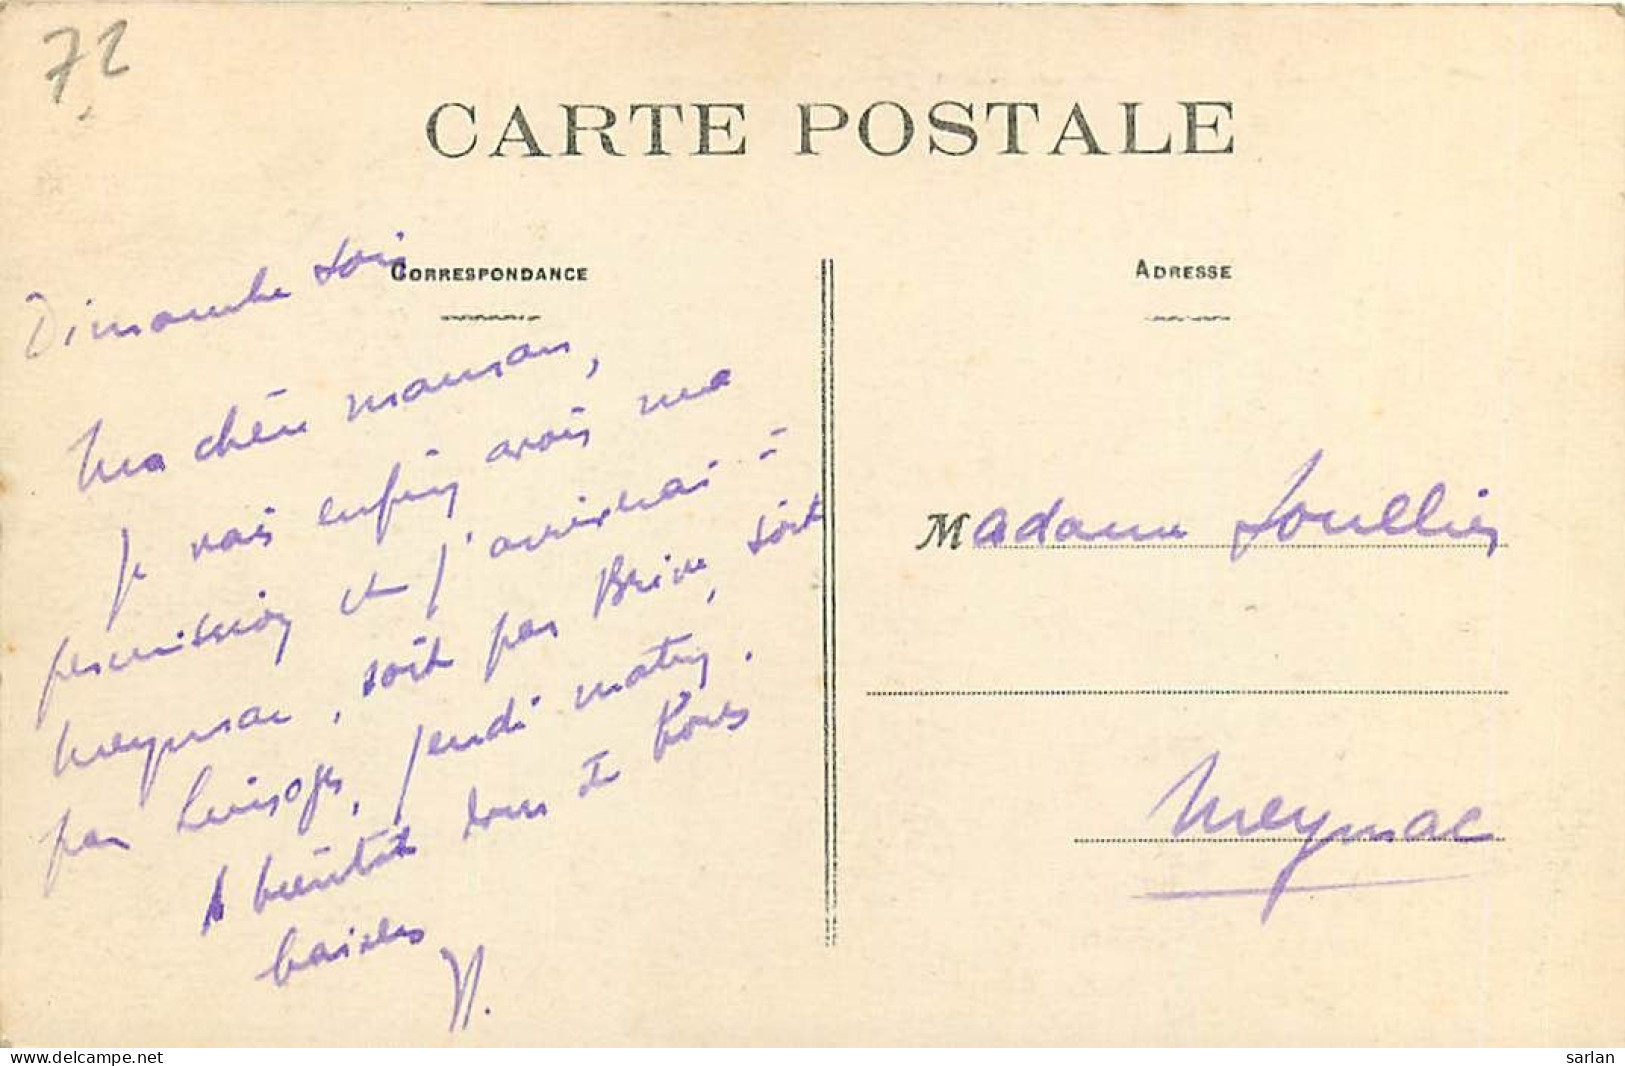 72
CARTE POSTALE
CORRESPONDANCE
ADRESSE
Dimanche soir
Ma chère maman,
Je vais enfin avoir ma
permission et j'arriverai à
Meymac, soit par Brive, soit
par Limoges, jeudi matin.
A bientôt donc et bons
baisers
Madame Soullier
Meymac
www.delcampe.net
sarlan